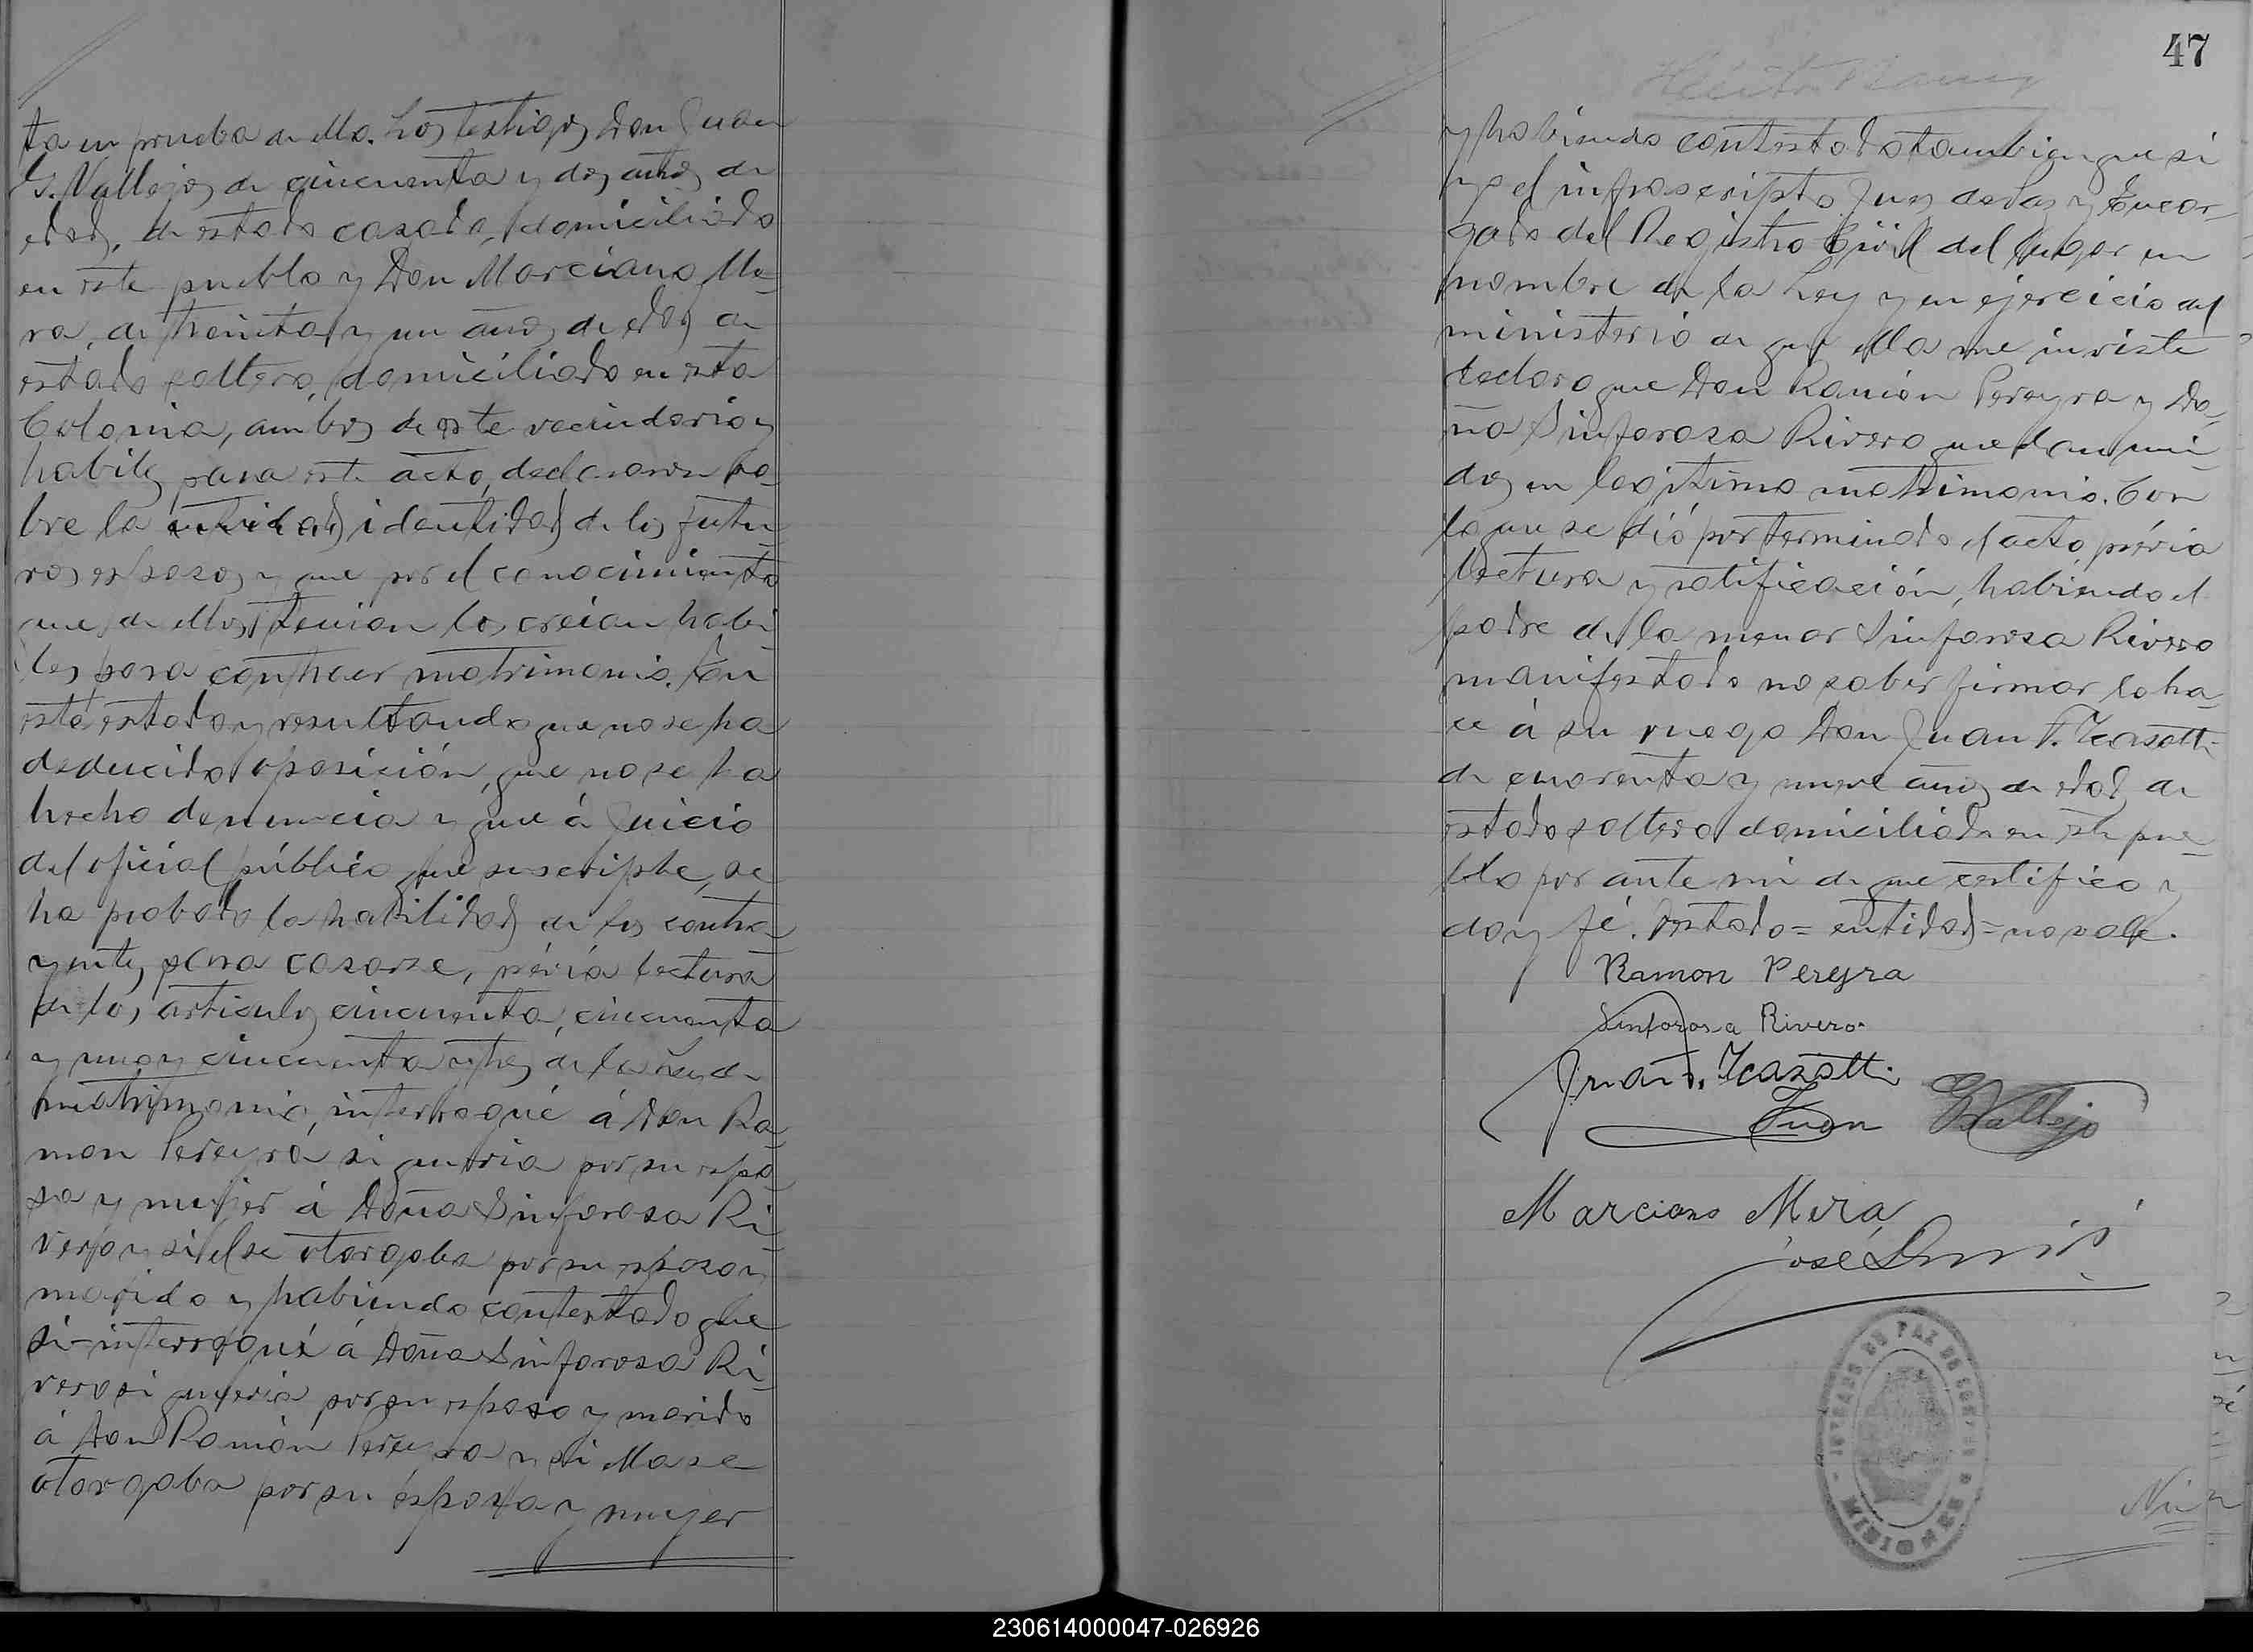 ta en prueba de ello. Los testigos Don Juan
G. Vallejos de cincuenta y dos años de
edad, de estado casado, domiciliado
en este pueblo y Don Marciano Me-
ra, de treinta y un años de edad de
estado soltero, domiciliado en esta
Colonia, ambos de este vecindario y
habiles para este acto, declararon so-
bre la entidad identidad de los futu-
ros esposos y que por el conocimiento
que de ellos tenian los creian habi-
les para contraer matrimonio. En
este estado y resultando que no se ha
deducido oposición, que no se ha
hecho denuncia y que á juicio
del oficial público que suscripbe, se
ha probado la habilidad de los contra-
yentes para casarse, prévia lectura
de los articulos cincuenta, cincuenta
y uno y cincuenta y tres de la Ley de
matrimonio, interrogué á Don Ra-
mon Pereyra si queria por su espo-
sa y mujer á Doña Sinforosa Ri-
vero y si el se otorgaba por su esposo y
marido y habiendo contestado que
si interrogué á Doña Sinforosa Ri-
vero si queria por su esposo y marido
á Don Ramón Pereyra y si ella se
otorgaba por su esposa y mujer
47
y habiendo contestado tambien que si
yo el infrascripto Juez de Paz y Encar-
gado del Registro Civil del lugar en
nombre de la Ley y en ejercicio del
ministerio de que ella me inviste
declaro que Don Ramón Pereyra y Do-
ña Sinforosa Rivero quedan uni-
dos en legitimo matrimonio. Con
lo que se dió por terminado el acto, prévia
lectura y ratificación, habiendo el
padre de la menor Sinforosa Rivero
manifestado no saber firmar lo ha-
ce á su ruego Don Juan F. Icasatti
de cuarenta y nueve años de edad, de
estado soltero domiciliado en este pue-
blo por ante mi de que certifico y
doy fé. Testado = entidad = no vale.
Ramon Pereyra
Sinforosa Rivero
Juan F. Icasatti
Juan G Vallejo
Marciano Mera
José
JUZGADO DE PAZ DE
MISIONES
230614000047-026926